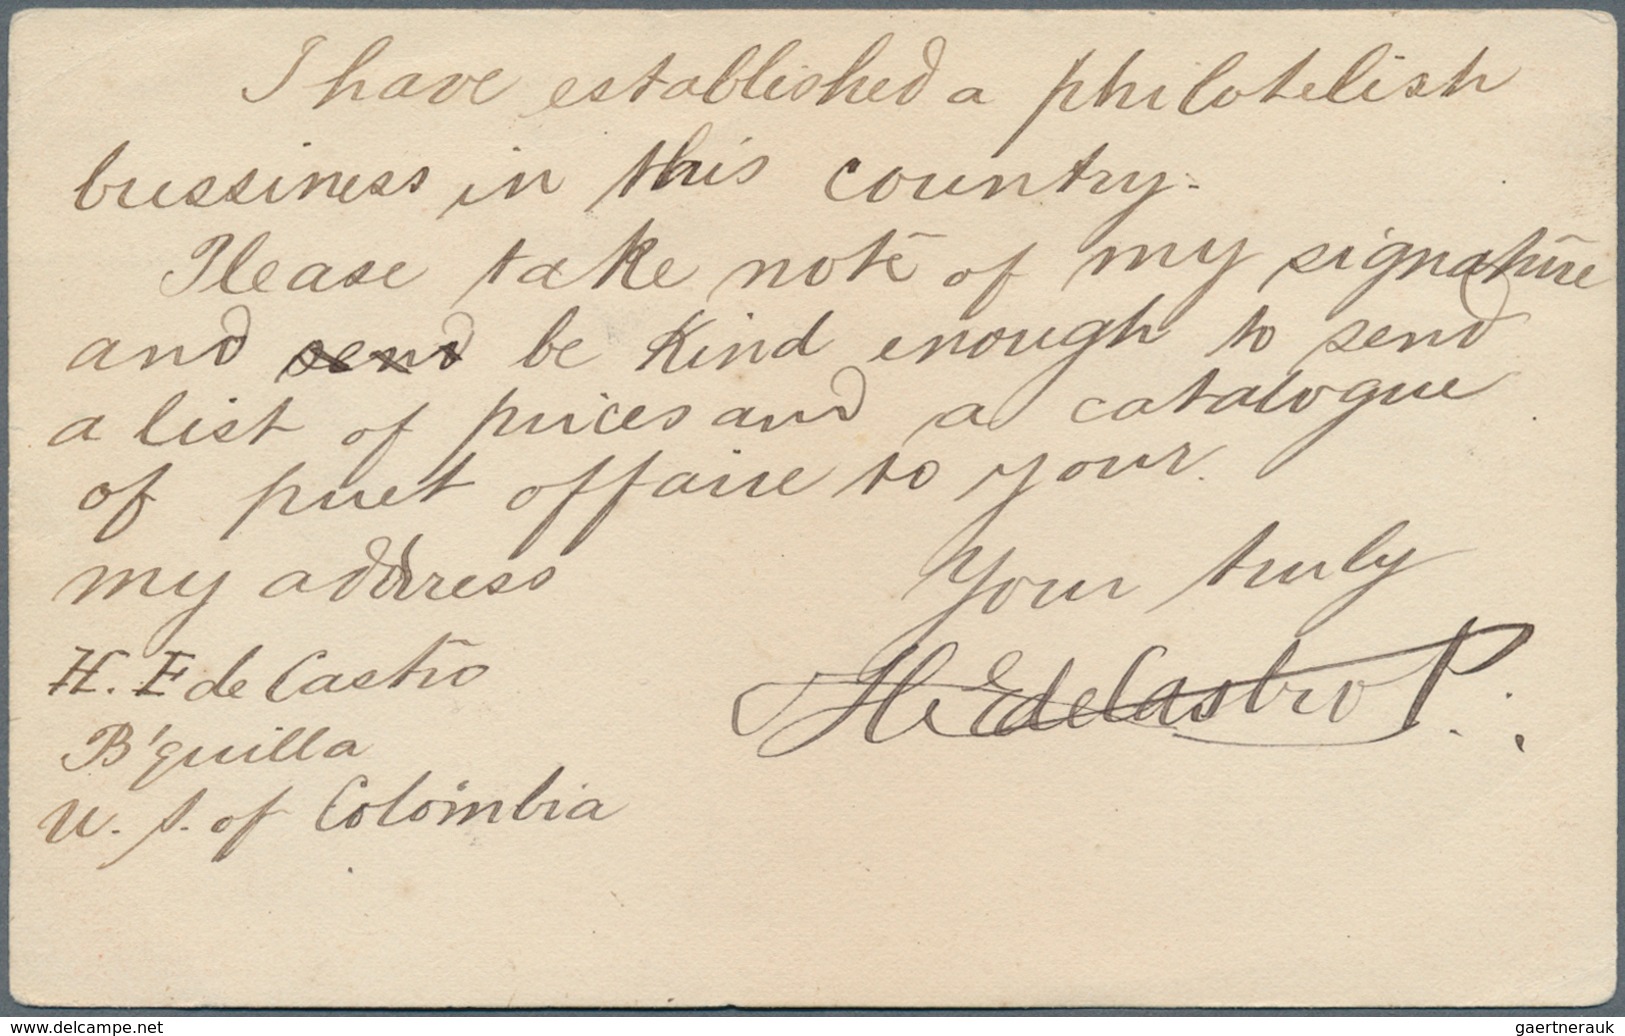 I have established a philotelish
bussiness in this country.
Please take note of my signature
and send be kind enough to send
a list of prices and a catalogue
of puet offaire to your.
my address
Your truly
H. E de Castro
H E de Castro P.
B'quilla
U. S. of Colombia
www.delcampe.net
gaertnerauk